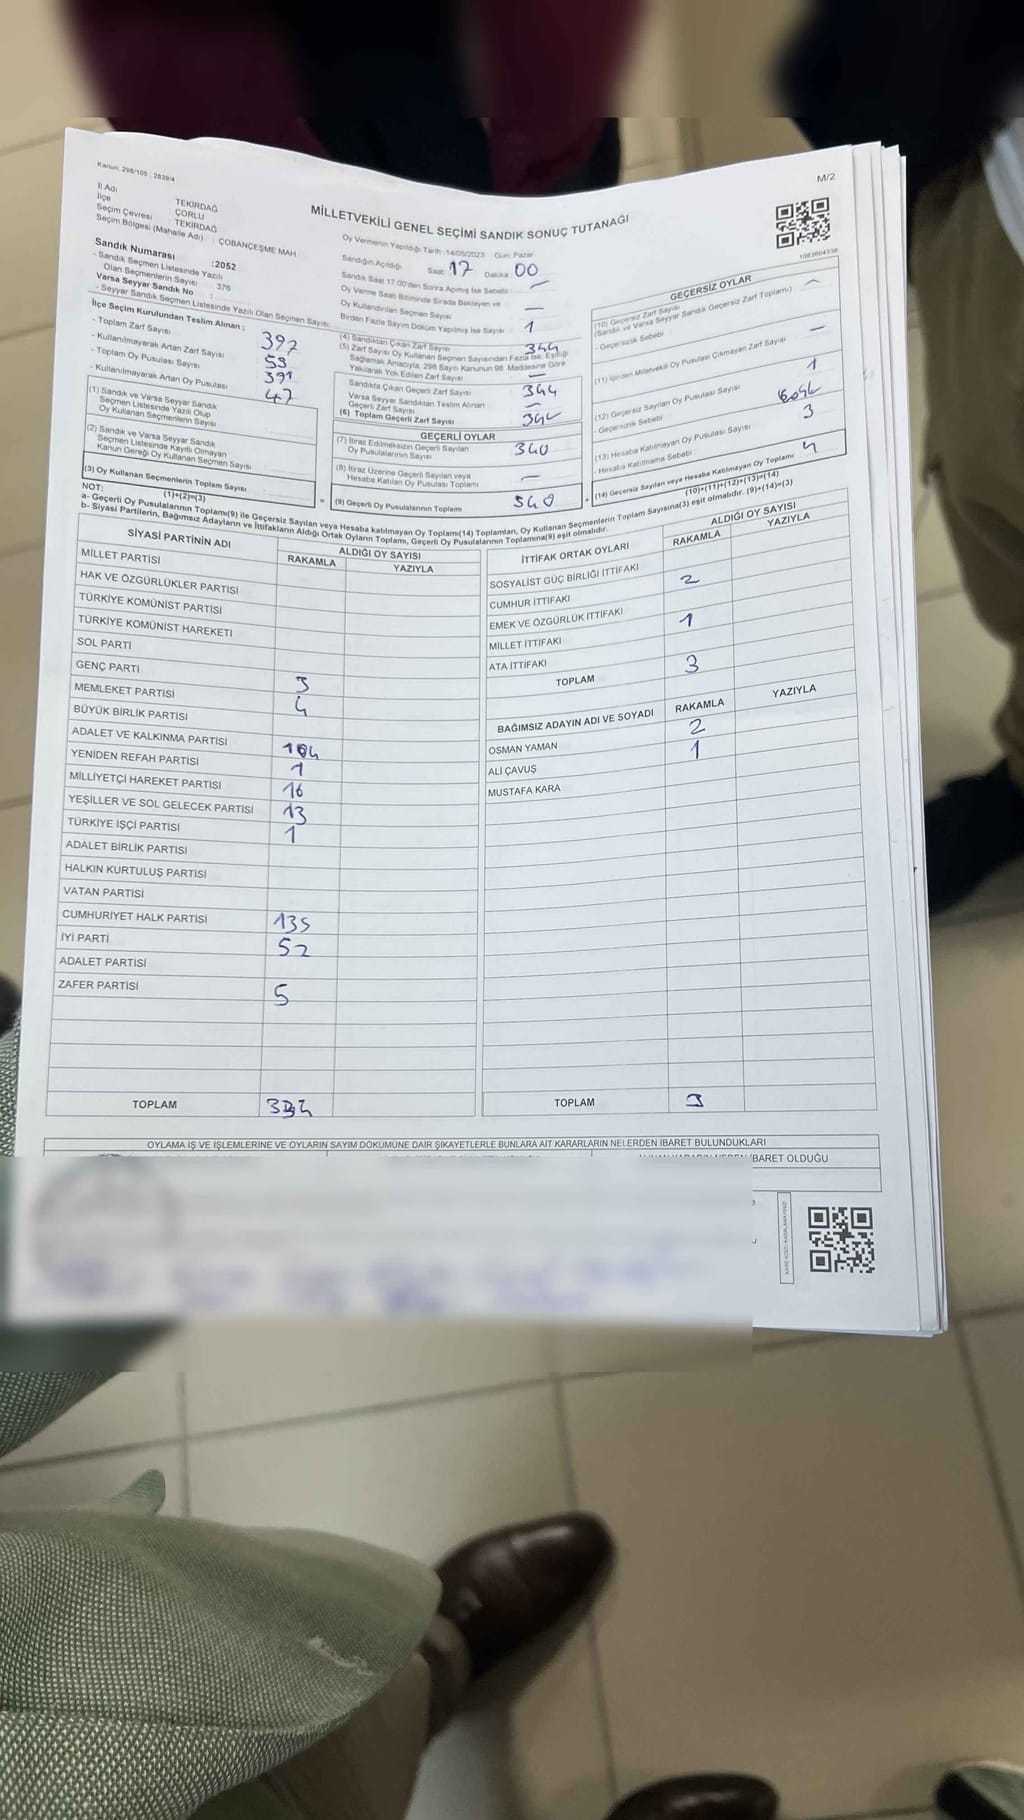 Kanun: 298/105 ; 2839/4
M/2
İl Adı TEKİRDAĞ
İlçe ÇORLU
Seçim Çevresi TEKİRDAĞ
Seçim Bölgesi (Mahalle Adı) : ÇOBANÇEŞME MAH.
MİLLETVEKİLİ GENEL SEÇİMİ SANDIK SONUÇ TUTANAĞI
1083604336
Sandık Numarası :2052
- Sandık Seçmen Listesinde Yazılı
Olan Seçmenlerin Sayısı : 376
Varsa Seyyar Sandık No :
- Seyyar Sandık Seçmen Listesinde Yazılı Olan Seçmen Sayısı:
İlçe Seçim Kurulundan Teslim Alınan ;
- Toplam Zarf Sayısı 397
- Kullanılmayarak Artan Zarf Sayısı 53
- Toplam Oy Pusulası Sayısı 391
- Kullanılmayarak Artan Oy Pusulası 47
(1) Sandık ve Varsa Seyyar Sandık
Seçmen Listesinde Yazılı Olup
Oy Kullanan Seçmenlerin Sayısı :
(2) Sandık ve Varsa Seyyar Sandık
Seçmen Listesinde Kayıtlı Olmayan
Kanun Gereği Oy Kullanan Seçmen Sayısı
(3) Oy Kullanan Seçmenlerin Toplam Sayısı
(1)+(2)=(3)
Oy Vermenin Yapıldığı Tarih :14/05/2023 Gün: Pazar
Sandığın Açıldığı Saat: 17 Dakika 00
Sandık Saat 17.00'den Sonra Açılmış İse Sebebi : —
Oy Verme Saati Bitiminde Sırada Bekleyen ve
Oy Kullandırılan Seçmen Sayısı —
Birden Fazla Sayım Döküm Yapılmış İse Sayısı 1
(4) Sandıktan Çıkan Zarf Sayısı 344
(5) Zarf Sayısı Oy Kullanan Seçmen Sayısından Fazla İse, Eşitliği
Sağlamak Amacıyla, 298 Sayılı Kanunun 98. Maddesine Göre
Yakılarak Yok Edilen Zarf Sayısı —
Sandıkta Çıkan Geçerli Zarf Sayısı 344
Varsa Seyyar Sandıktan Teslim Alınan
Geçerli Zarf Sayısı —
(6) Toplam Geçerli Zarf Sayısı 344
GEÇERLİ OYLAR
(7) İtiraz Edilmeksizin Geçerli Sayılan
Oy Pusulalarının Sayısı 340
(8) İtiraz Üzerine Geçerli Sayılan veya
Hesaba Katılan Oy Pusulası Toplamı —
(9) Geçerli Oy Pusulalarının Toplamı 340
GEÇERSİZ OYLAR
(10) Geçersiz Zarf Sayısı
(Sandık ve Varsa Seyyar Sandık Geçersiz Zarf Toplamı) —
- Geçersizlik Sebebi :
(11) İçinden Milletvekili Oy Pusulası Çıkmayan Zarf Sayısı —
(12) Geçersiz Sayılan Oy Pusulası Sayısı 1
- Geçersizlik Sebebi :
(13) Hesaba Katılmayan Oy Pusulası Sayısı 3
- Hesaba Katılmama Sebebi :
(14) Geçersiz Sayılan veya Hesaba Katılmayan Oy Toplamı : 4
(10)+(11)+(12)+(13)=(14)
NOT:
a- Geçerli Oy Pusulalarının Toplamı(9) ile Geçersiz Sayılan veya Hesaba katılmayan Oy Toplamı(14) Toplamları, Oy Kullanan Seçmenlerin Toplam Sayısına(3) eşit olmalıdır. (9)+(14)=(3)
b- Siyasi Partilerin, Bağımsız Adayların ve İttifakların Aldığı Ortak Oyların Toplamı, Geçerli Oy Pusulalarının Toplamına(9) eşit olmalıdır.
SİYASİ PARTİNİN ADI ALDIĞI OY SAYISI
RAKAMLA YAZIYLA
MİLLET PARTİSİ
HAK VE ÖZGÜRLÜKLER PARTİSİ
TÜRKİYE KOMÜNİST PARTİSİ
TÜRKİYE KOMÜNİST HAREKETİ
SOL PARTİ
GENÇ PARTİ
MEMLEKET PARTİSİ 3
BÜYÜK BİRLİK PARTİSİ 4
ADALET VE KALKINMA PARTİSİ 104
YENİDEN REFAH PARTİSİ 1
MİLLİYETÇİ HAREKET PARTİSİ 16
YEŞİLLER VE SOL GELECEK PARTİSİ 13
TÜRKİYE İŞÇİ PARTİSİ 1
ADALET BİRLİK PARTİSİ
HALKIN KURTULUŞ PARTİSİ
VATAN PARTİSİ
CUMHURİYET HALK PARTİSİ 135
İYİ PARTİ 52
ADALET PARTİSİ
ZAFER PARTİSİ 5
TOPLAM 334
İTTİFAK ORTAK OYLARI ALDIĞI OY SAYISI
RAKAMLA YAZIYLA
SOSYALİST GÜÇ BİRLİĞİ İTTİFAKI
CUMHUR İTTİFAKI 2
EMEK VE ÖZGÜRLÜK İTTİFAKI
MİLLET İTTİFAKI 1
ATA İTTİFAKI
TOPLAM 3
BAĞIMSIZ ADAYIN ADI VE SOYADI RAKAMLA YAZIYLA
OSMAN YAMAN 2
ALİ ÇAVUŞ 1
MUSTAFA KARA
TOPLAM 3
OYLAMA İŞ VE İŞLEMLERİNE VE OYLARIN SAYIM DÖKÜMÜNE DAİR ŞİKAYETLERLE BUNLARA AİT KARARLARIN NELERDEN İBARET BULUNDUKLARI
İBARET OLDUĞU